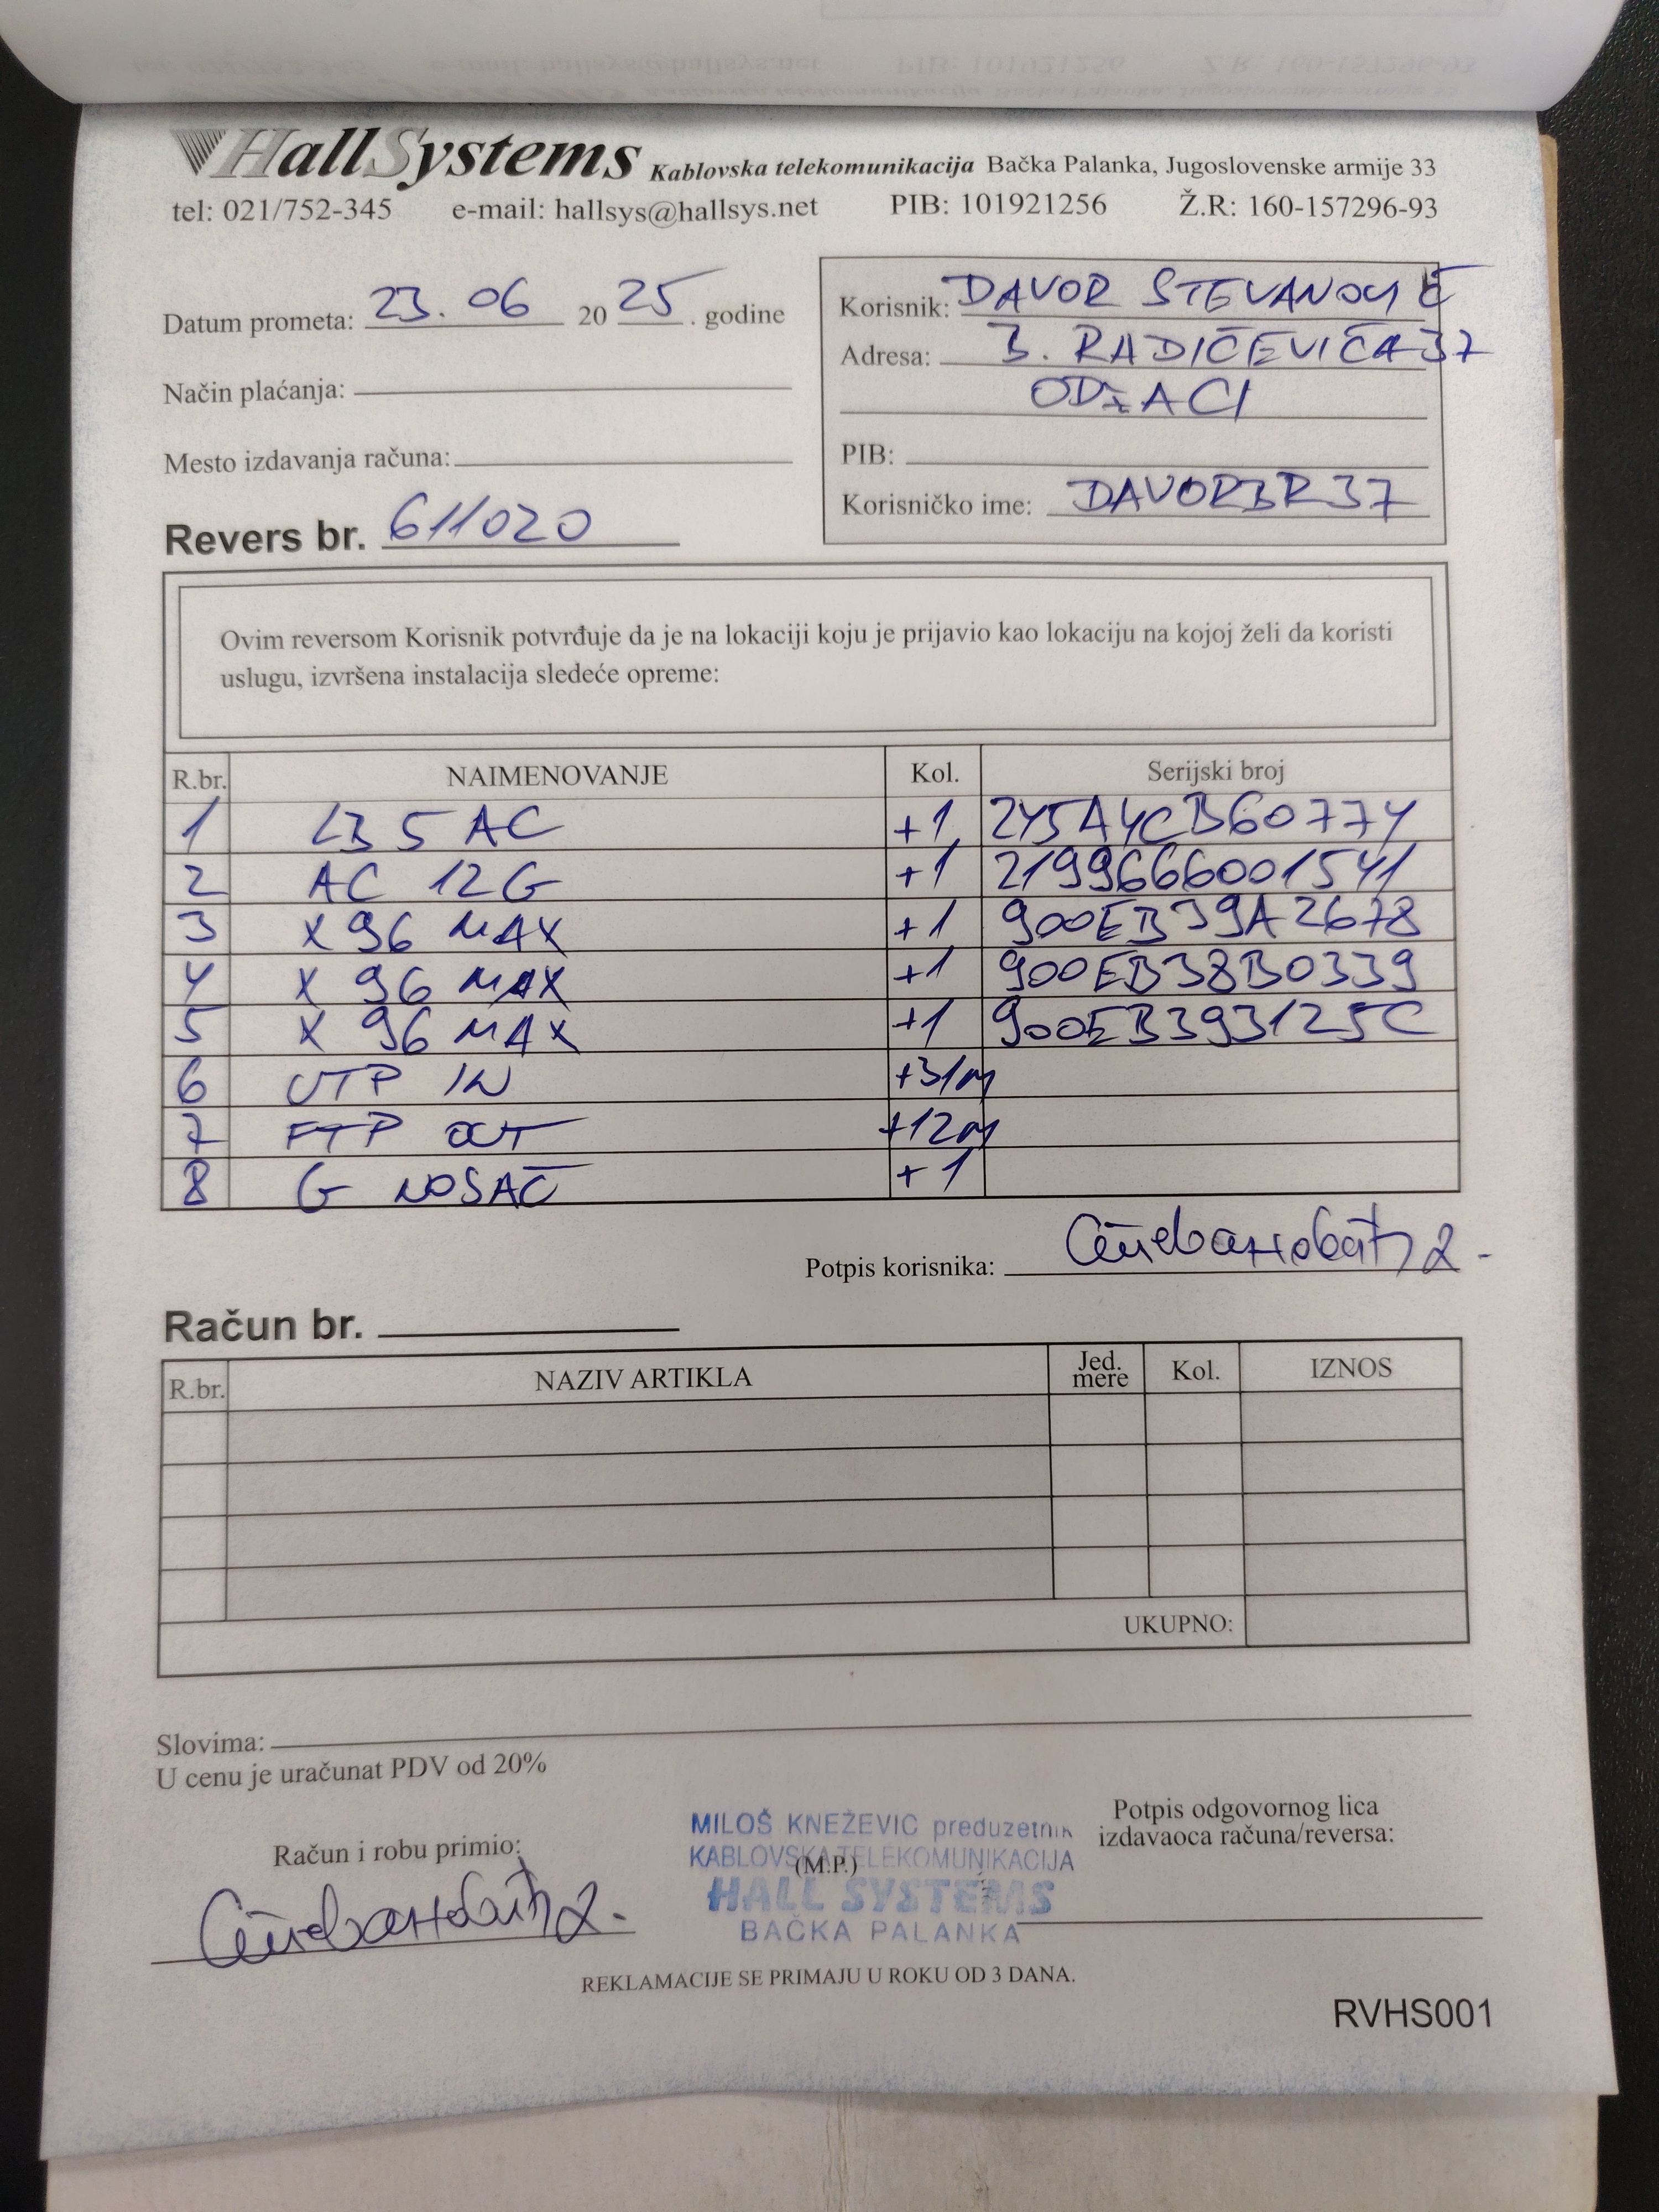 HallSystems Kablovska telekomunikacija Bačka Palanka, Jugoslovenske armije 33
tel: 021/752-345 e-mail: hallsys@hallsys.net PIB: 101921256 Ž.R: 160-157296-93
Datum prometa: 23. 06 20 25 . godine
Način plaćanja:
Mesto izdavanja računa:
Revers br. 611020
Korisnik: DAVOR STEVANOVIĆ
Adresa: B. RADIČEVIĆA 37
ODŽACI
PIB:
Korisničko ime: DAVORBR37
Ovim reversom Korisnik potvrđuje da je na lokaciji koju je prijavio kao lokaciju na kojoj želi da koristi
uslugu, izvršena instalacija sledeće opreme:
R.br. NAIMENOVANJE Kol. Serijski broj
1 LB 5 AC +1 245A4CB60774
2 AC 12G +1 2199666001541
3 X 96 MAX +1 900EB39A2678
4 X 96 MAX +1 900EB38B0339
5 X 96 MAX +1 900EB393125C
6 UTP IN +31m
7 FTP OUT +12m
8 G NOSAČ +1
Potpis korisnika: Стевановић Д.
Račun br.
R.br. NAZIV ARTIKLA Jed. mere Kol. IZNOS
UKUPNO:
Slovima:
U cenu je uračunat PDV od 20%
Račun i robu primio:
Стевановић Д.
MILOŠ KNEŽEVIC preduzetnik
KABLOVSKA TELEKOMUNIKACIJA
(M.P.)
HALL SYSTEMS
BAČKA PALANKA
Potpis odgovornog lica
izdavaoca računa/reversa:
REKLAMACIJE SE PRIMAJU U ROKU OD 3 DANA.
RVHS001